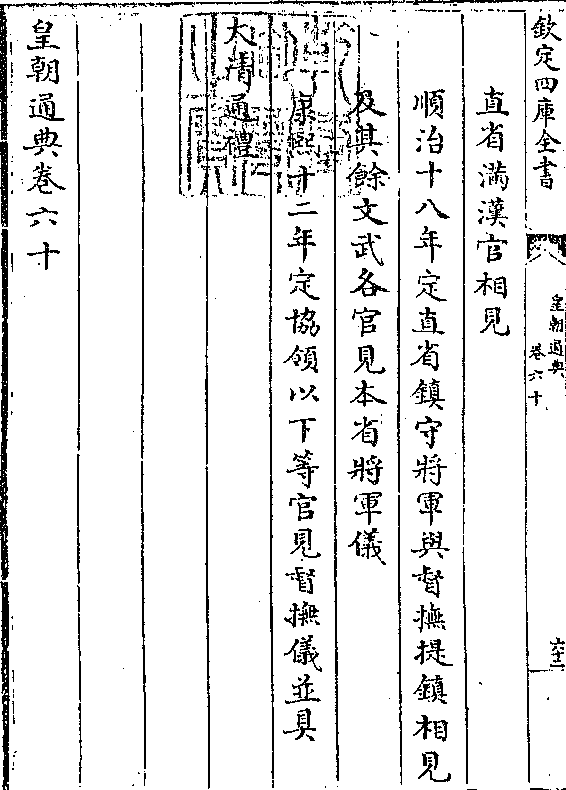 欽定四庫全書
皇朝通典
卷六十
六十二
直省滿漢官相見
順治十八年定直省鎮守將軍與督撫提鎮相見
及其餘文武各官見本省將軍儀
康熙十二年定協領以下等官見督撫儀並具
大清通禮
皇朝通典卷六十